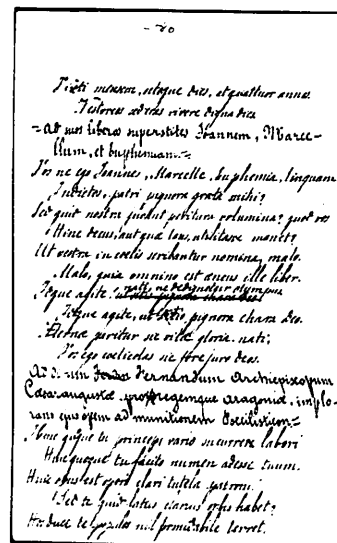 - 80
Vixti menses, octoque dies, et quattuor annos.
Nestoreos vivere digna dies
Ad nos liberos superstites Joannem, Marce-
llum, et Euphemiam.
Vos ne ego Joannes, Marcelle, Euphemia, linquam
patri pignora grata mihi?
Sed quid nostra peritura volumina? quod vos
Hinc decus, aut quae laus, utilitasve manet?
Ut vestra in coelis scribantur nomina malo.
Malo, quia omnino est aeneus ille liber.
nati, ne dedignetur olympus
Idque agite
Idque agite, ut pignora chara deo.
Aeternae paritur sic vitae gloria, nati,
Vos ego coelicolas sic fore juro deos.
Ad Fernandum Archiepiscopum
Caesaraugustae, proregemque Aragoniae, implo-
rans ejus opem ad munitionem
Hunc quoque tu princeps succurrere labori
Huic quoque tu facito numen adesse tuum.
Huic opus est operi clari tutela patroni:
Sed te quid latus clarus orbis habet?
Hoc duce te nil formidabile terret.